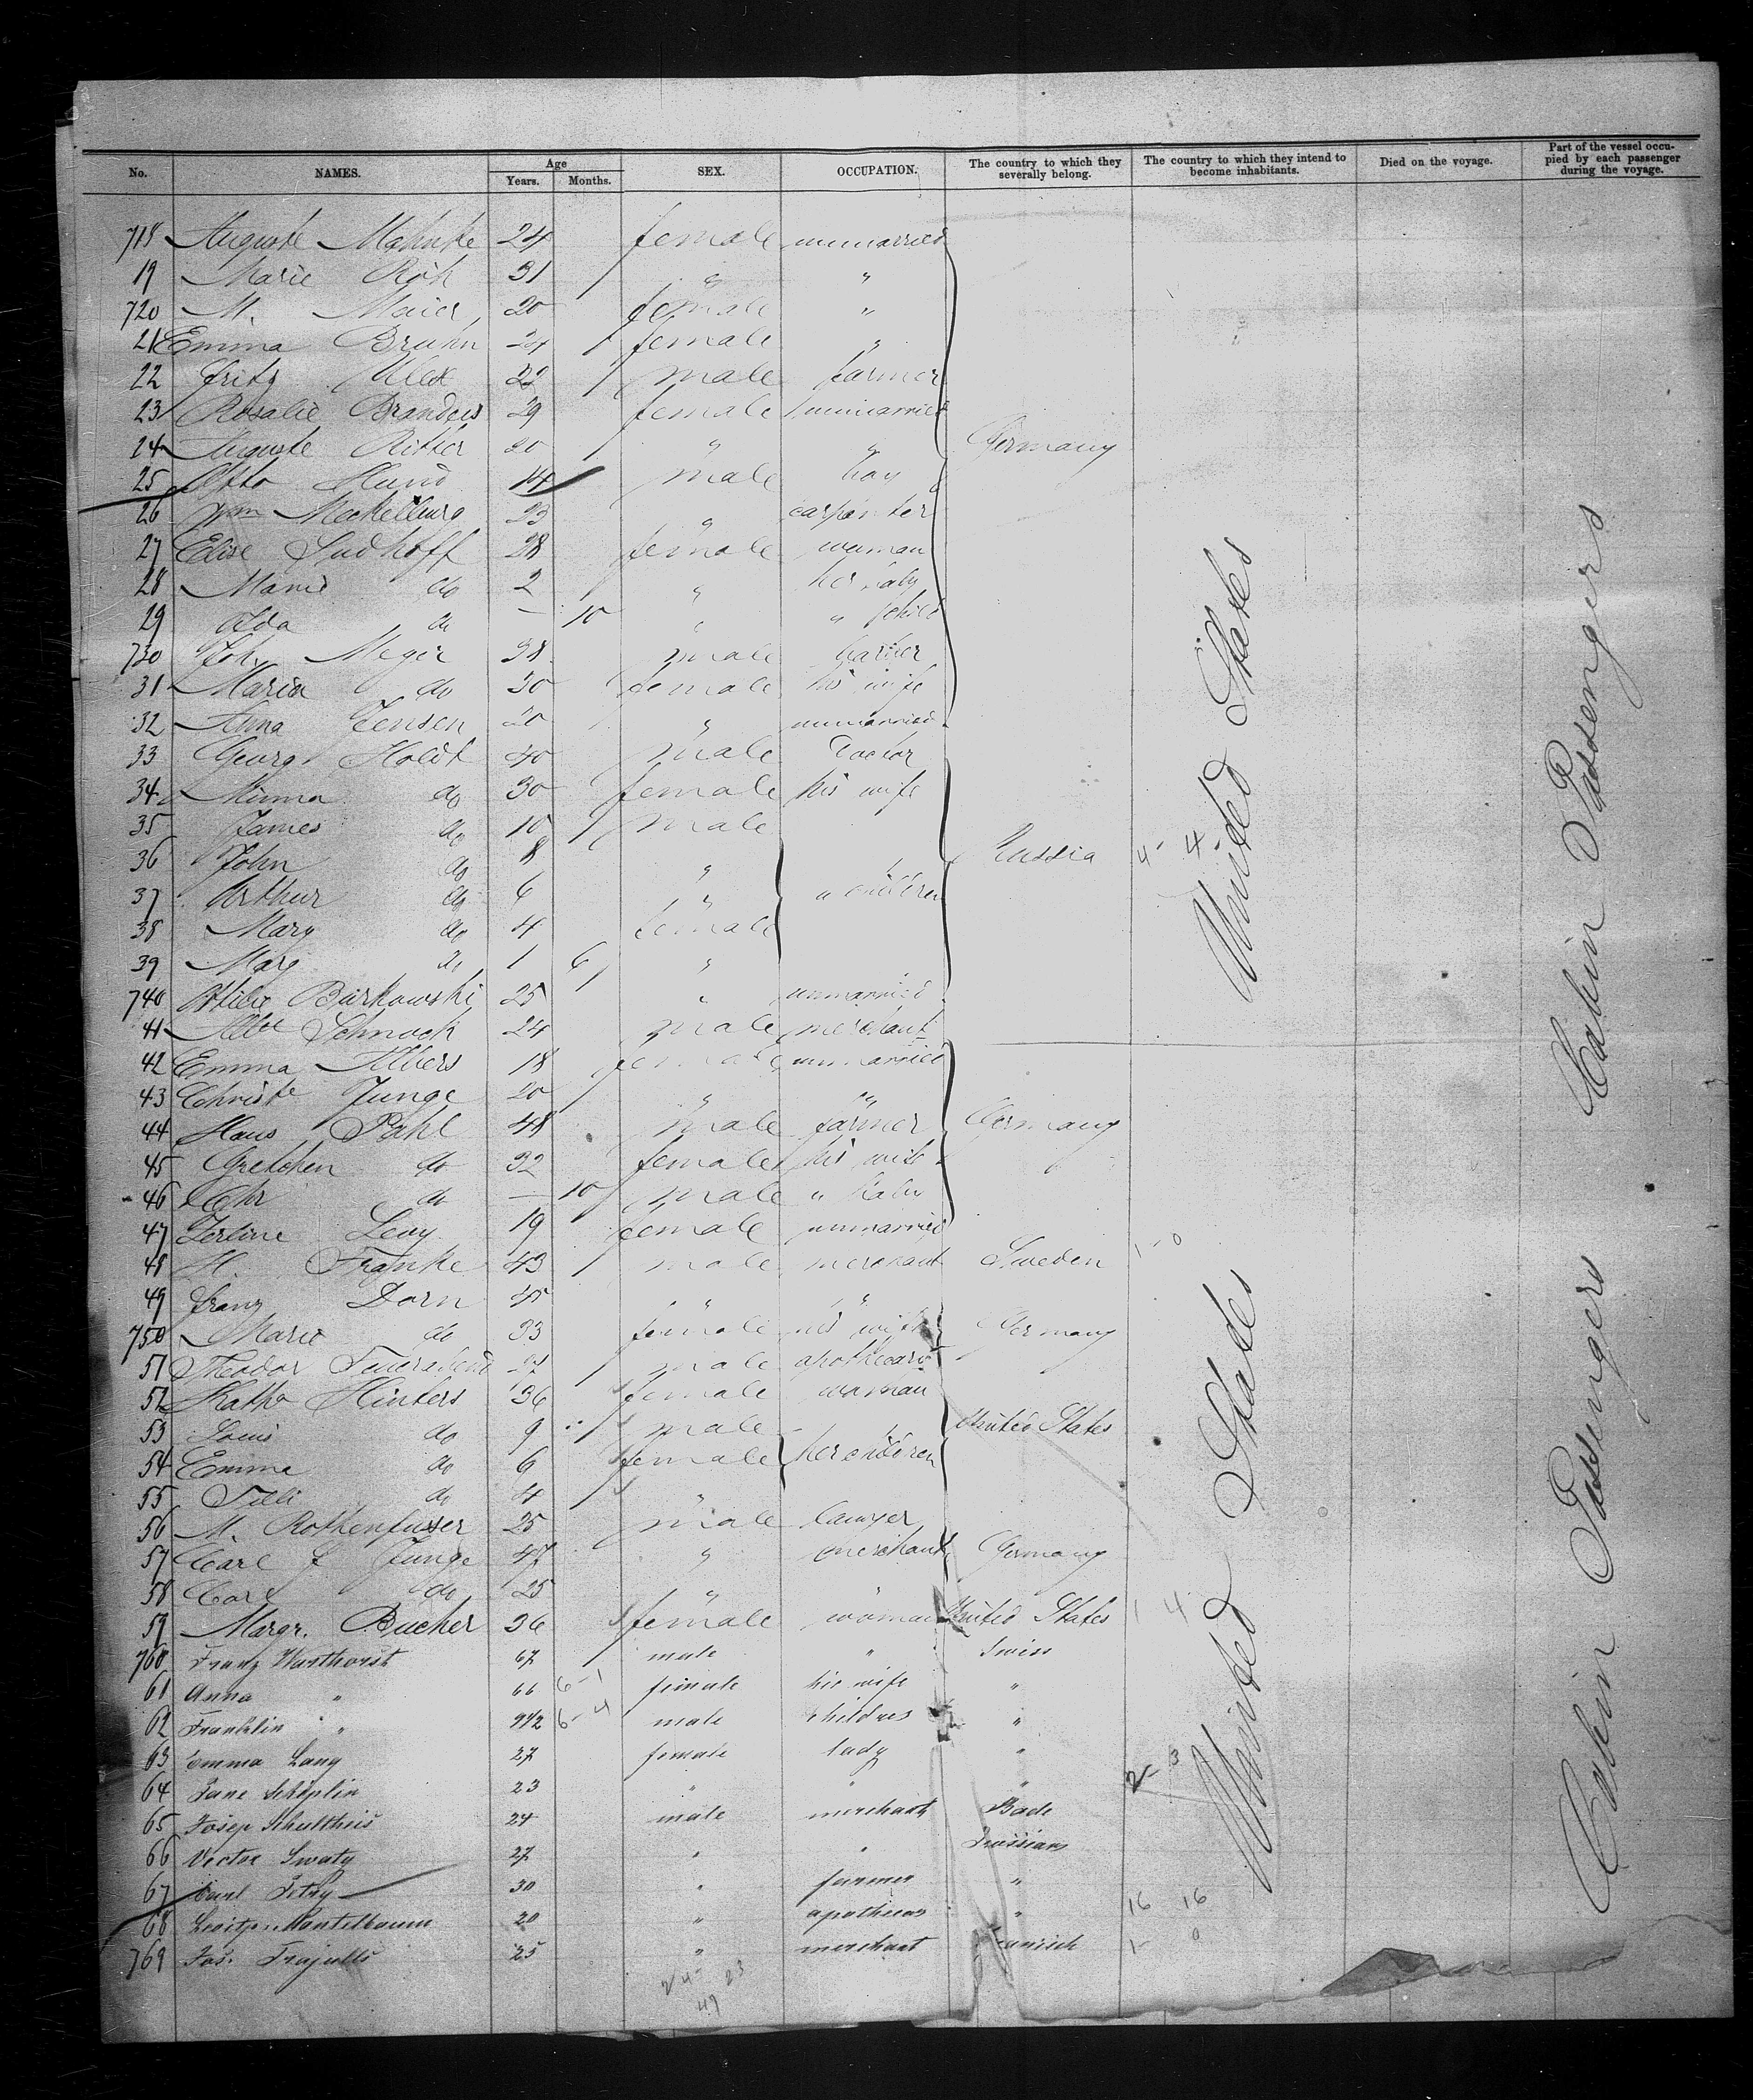 No. NAMES. Age Years. Months. SEX. OCCUPATION. The country to which they severally belong. The country to which they intend to become inhabitants. Died on the voyage. Part of the vessel occupied by each passenger during the voyage.
718 Auguste Mahnke 24 female unmarried
19 Marie Röh 31 " "
720 M. Maier 20 female "
21 Emma Bruhn 24 female "
22 Fritz 22 male farmer
23 Rosalie Brandeis 29 female unmarried
24 Auguste Ritter 20 " " Germany
25 Otto Hund 14 male boy
26 Wm Meckelburg 23 " carpenter
27 Elise Sudhoff 28 female woman
28 Marie do 2 " her baby
29 Ida do — 10 " " child
730 Joh. Meyer 38 male barber
31 Maria do 30 female his wife
32 Anna Jensen 20 " unmarried
33 Georg Holdt 40 male Doctor
34 Minna do 30 female his wife
35 James do 10 male
36 John do 8 " Russia 4- 4-
37 Arthur do 6 " " children
38 Mary do 4 female
39 Marg do 1 6 "
740 Ottilie Burkowski 25 " unmarried
41 Albt Schnock 24 male merchant
42 Emma Albers 18 female unmarried
43 Christe Junge 20 " "
44 Hans Pahl 48 male farmer Germany
45 Gretchen do 32 female his wife
46 Chr do — 10 male " baby
47 Zerline Levy 19 female unmarried
48 H. Franke 43 male merchant Sweden 1-0
49 Franz Dorn 45 " "
750 Marie do 33 female his wife Germany
51 Theodor 27 male apothecary
52 Kathe Hinters 36 female woman
53 Louis do 9 male United States
54 Emma do 6 female her children
55 Tilli do 4 "
56 M. Rothenfusser 25 male lawyer
57 Carl F Junge 47 " merchant Germany
58 Carl do 25 " "
59 Margr. Bucher 36 female woman United States 1 4
760 Franz Warthorst 67 male " Swiss
61 Anna " 66 6-1 female his wife "
62 Franklin " 9 1/2 6-4 male childres "
63 Emma Lang 27 female lady "
64 Jane Schöplin 23 " " " 2-3
65 Josep Schulthies 24 male merchant Bade
66 Victor Swaty 27 " " Prussians
67 Carl Petry 30 " farmer "
68 Mantelbaum 20 " apothecas " 16 16
769 Jos. 25 " merchant 1- 0
24- 23
49
United States
United States
Cabin Passengers
Cabin Passengers